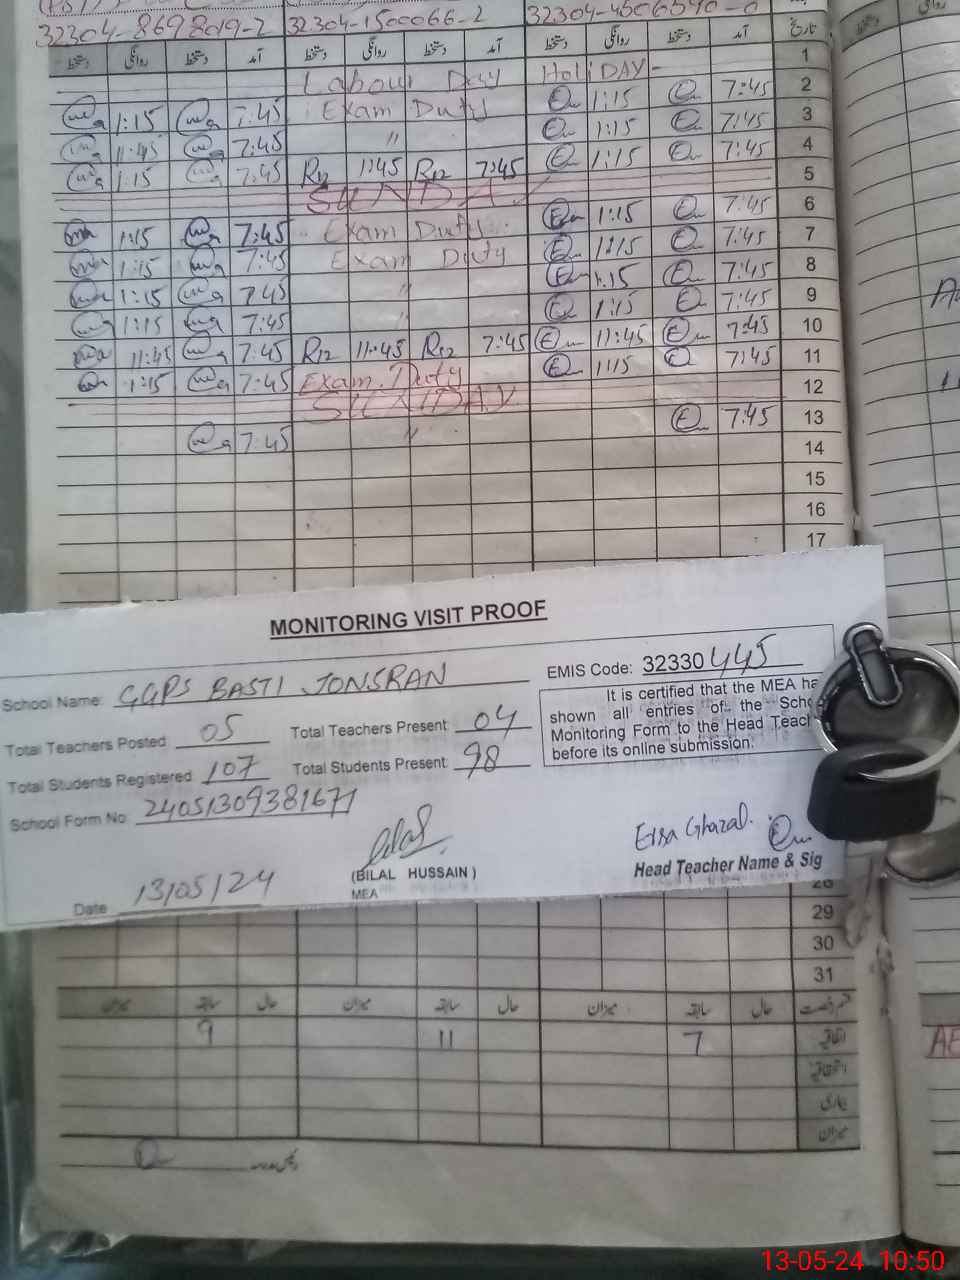 32304-8698019-2 32304-1500066-2
دستخط روانگی دستخط آمد دستخط روانگی دستخط آمد دستخط روانگی دستخط آمد تاریخ
1
Labour Day Holi DAY - 2
1:15 7:45 Exam Duty 1:15 7:45 3
11:45 7:45 " 1:15 7:45 4
1:15 7:45 R12 11:45 R12 7:45 1:15 7:45 5
SUNDAY 6
1:15 7:45 Exam Duty 1:15 7:45 7
1:15 7:45 Exam Duty 1:15 7:45 8
1:15 7:45 " 1:15 7:45 9
1:15 7:45 " 1:15 7:45 10
11:45 7:45 R12 11:45 R12 7:45 11:45 7:45 11
1:15 7:45 Exam Duty 1:15 7:45 12
SUNDAY 13
7:45 " 7:45 14
15
16
17
MONITORING VISIT PROOF
School Name: GGPS BASTI JONSRAN EMIS Code: 32330445
Total Teachers Posted 05 Total Teachers Present 04
Total Students Registered 107 Total Students Present 98
School Form No 24051309381671
It is certified that the MEA ha
shown all entries of the Scho
Monitoring Form to the Head Teach
before its online submission.
Ersa Ghazal.
(BILAL HUSSAIN)
MEA
Head Teacher Name & Sig
Date 13/05/24
28
29
30
31
میزان سابقہ حال میزان سابقہ حال میزان سابقہ حال قسم رخصت
9 11 7 اتفاقیہ
بیماری
میزان
13-05-24 10:50